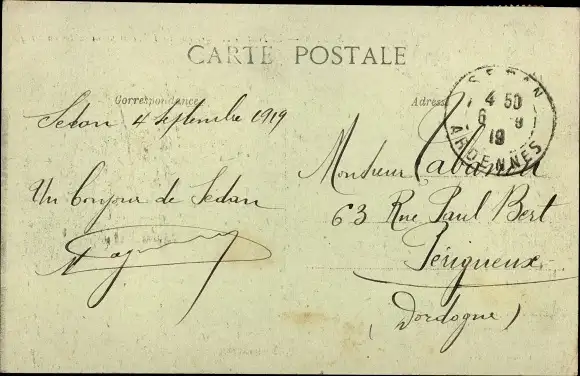 CARTE POSTALE
Correspondance
Adresse
Sedan 4 Septembre 1919
Un bonjour de Sedan
Monsieur
63 Rue Paul Bert
Périgueux
(Dordogne)
SEDAN
4 50
6 - 9
19
ARDENNES